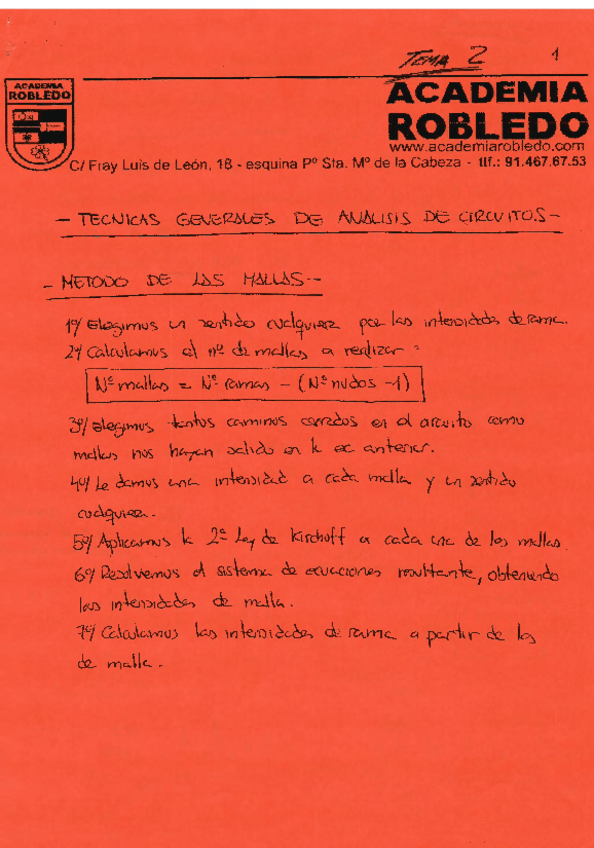 TEMA 2 1
ACADEMIA
ROBLEDO
ACADEMIA
ROBLEDO
www.academiarobledo.com
C/ Fray Luis de León, 18 - esquina Pº Sta. Mº de la Cabeza - tlf.: 91.467.67.53
- TECNICAS GENERALES DE ANALISIS DE CIRCUITOS -
- METODO DE LAS MALLAS --
1º/ Elegimos un sentido cualquiera por las intensidades de rama.
2º/ Calculamos el nº de mallas a realizar :
Nº mallas = Nº ramas - (Nº nudos - 1)
3º/ elegimos tantos caminos cerrados en el circuito como
mallas nos hayan salido en la ec anterior.
4º/ Le damos una intensidad a cada malla y un sentido
cualquiera.
5º/ Aplicamos la 2ª Ley de Kirchoff a cada una de las mallas
6º/ Resolvemos el sistema de ecuaciones resultante, obteniendo
las intensidades de malla.
7º/ Calculamos las intensidades de rama a partir de las
de malla.